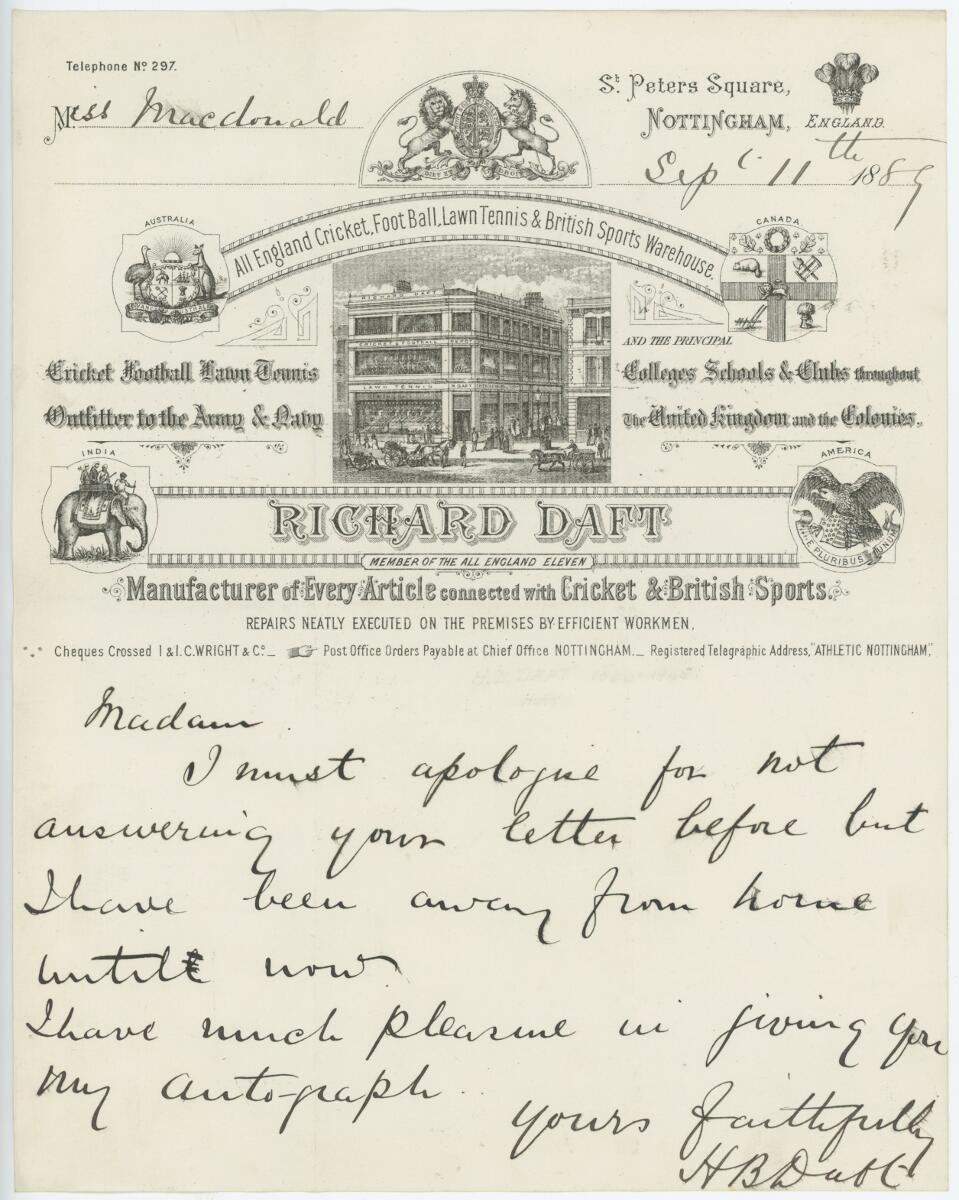 Telephone No 297.
Miss Macdonald
St Peters Square,
NOTTINGHAM, ENGLAND.
Sept 11th 1889
AUSTRALIA
All England Cricket, Foot Ball, Lawn Tennis & British Sports Warehouse.
CANADA.
RICHARD DAFT
LAWN TENNIS
AND THE PRINCIPAL
Cricket Football Lawn Tennis
Colleges Schools & Clubs throughout
Outfitter to the Army & Navy
The United Kingdom and the Colonies.
INDIA
AMERICA
E PLURIBUS UNUM
RICHARD DAFT
MEMBER OF THE ALL ENGLAND ELEVEN
Manufacturer of Every Article connected with Cricket & British Sports.
REPAIRS NEATLY EXECUTED ON THE PREMISES BY EFFICIENT WORKMEN.
Cheques Crossed I & I.C. WRIGHT & Co_ Post Office Orders Payable at Chief Office NOTTINGHAM._ Registered Telegraphic Address, "ATHLETIC NOTTINGHAM,"
Madam
I must apologise for not
answering your letter before but
I have been away from home
until now
I have much pleasure in giving you
my autograph.
yours faithfully
H B Daft